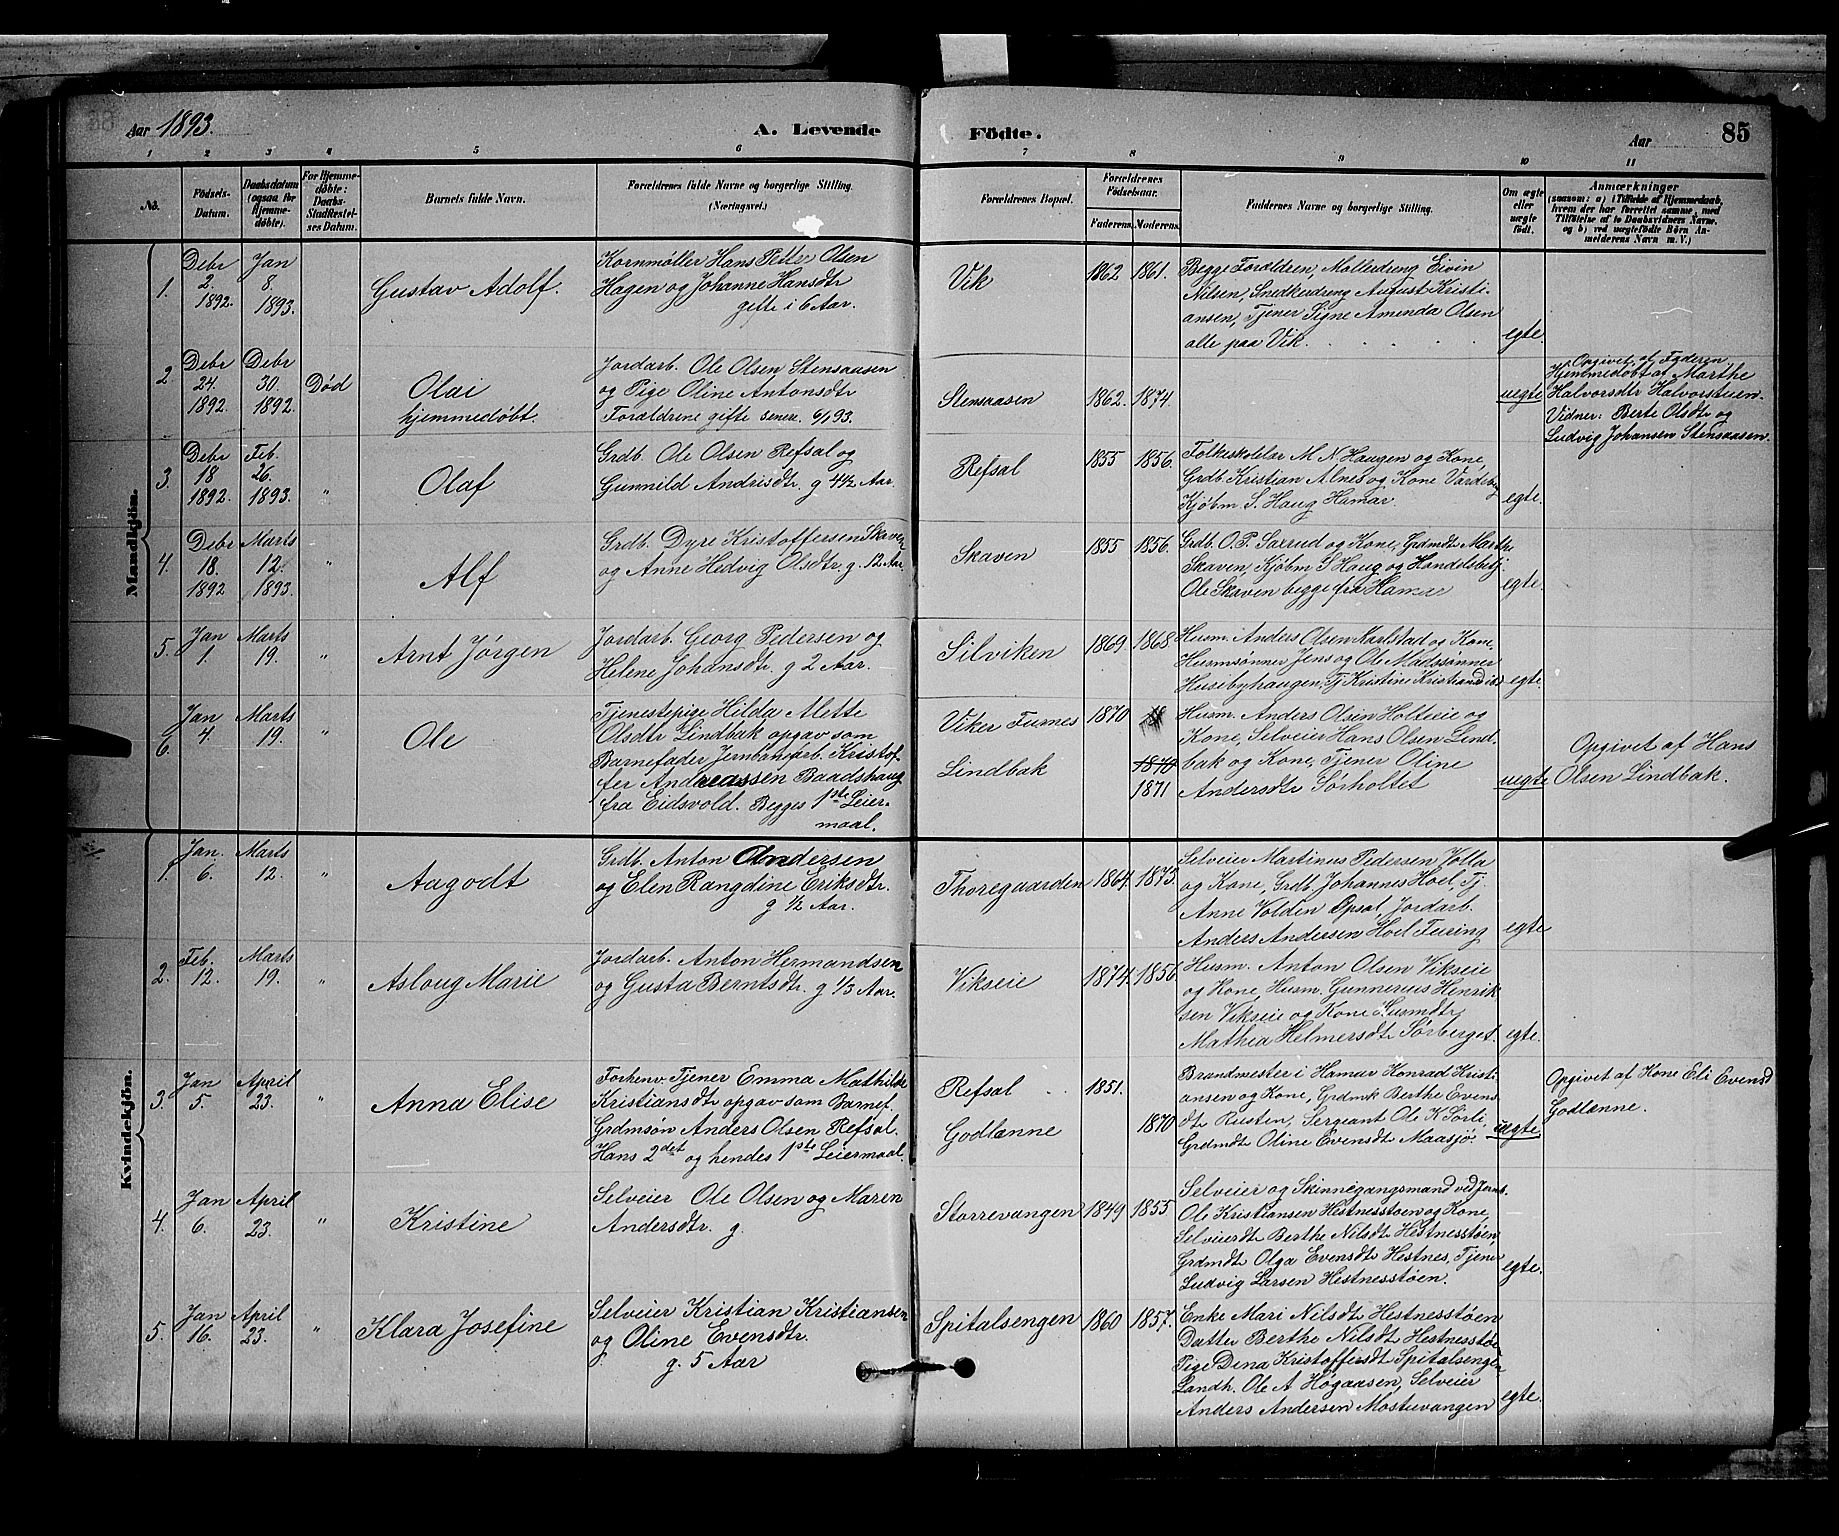 Aar 1893.
A. Levende Födte.
Aar
85
1 2 3 4 5 6 7 8 9 10 11
No.
Födsels-
Datum.
Daabsdatum
(ogsaa for
Hjemme-
döbte).
For Hjemme-
döbte:
Daabs-
Stadfæstel-
ses Datum.
Barnets fulde Navn.
Forældrenes fulde Navne og borgerlige Stilling.
(Næringsvei.)
Forældrenes Bopæl.
Forældrenes
Födselsaar.
Faderens. Moderens.
Faddernes Navne og borgerlige Stilling.
Om ægte
eller
uægte
födt.
Anmærkninger
(saasom: a) i Tilfælde af Hjemmedaab,
hvem der har forrettet samme, med
Tilföielse af to Daabsvidners Navne,
og b) ved uægtefödte Börn An-
melderens Navn m. V.)
Mandkjön.
1.
Debr
2.
1892.
Jan
8.
1893.
Gustav Adolf.
Kornmøller Hans Petter Olsen
Hagen og Johanne Hansdtr
gifte i 6 Aar.
Vik
1862 1861.
Begge Forældren, Mølledreng Eivin
Nilsen, Snedkerdreng August Kristi-
ansen, Tjener Signe Amenda Olsen
alle paa Vik.
egte.
2.
Debr
24.
1892
Debr
30.
1892.
Død
Olai
hjemmedøbt.
Jordarb. Ole Olsen Stensaasen
og Pige Oline Antonsdtr
Forældrene gifte senere 6/1 93.
Stensaasen
1862. 1874.
uegte
Opgivet af Faderen
Hjemmedøbt af Marthe
Halvorsdtr Halvorstuen.
Vidner: Berte Olsdtr og
Ludvig Johansen Stensaasen.
3.
Debr
18
1892.
Feb.
26.
1893.
"
Olaf
Grdb. Ole Olsen Refsal og
Gunnild Andrisdtr. g 4½ Aar.
Refsal
1855 1856.
Folkeskolelær M N Haugen og Kone,
Grdb. Kristian Alnes og Kone Vardeberg
Kjøbm S. Haug Hamar.
egte.
4.
Debr
18.
1892
Marts
12.
1893.
"
Alf
Grdb. Dyre Kristoffersen Skaven
og Anne Hedvig Olsdtr, g. 12 Aar.
Skaven
1855 1856.
Grdb. O. P. Saxrud og Kone, Grdmdt Marthe
Skaven, Kjøbm S Haug og Handelsbetj.
Ole Skaven begge fra Hamar
egte.
5.
Jan
1.
Marts
19.
"
Arnt Jørgen
Jordarb. Georg Pedersen og
Helene Johansdtr. g 2 Aar.
Silviken
1869. 1868.
Husm. Anders Olsen Karlstad og Kone,
Husmsønner Jens og Ole Madssønner
Husebyhaugen, Tj Kristine Kristiansd ibd
egte.
6.
Jan
4.
Marts
19.
"
Ole
Tjenestepige Hilda Mette
Olsdtr Lindbak opgav som
Barnefader Jernbanearb. Kristof
fer Andreassen Baadshaug
fra Eidsvold. Begges 1ste Leier-
maal.
Viker Furnes
Lindbak
1870
1870
1871
Husm. Anders Olsen Holteeie og
Kone, Selveier Hans Olsen Lind
bak og Kone, Tjener Oline
Andersdtr Sørholtet
uegte
Opgivet af Hans
Olsen Lindbak.
Kvindekjön.
1.
Jan.
6.
Marts
12.
"
Aagodt
Grdb. Anton Andersen
og Elen Rangdine Eriksdtr.
g ½ Aar.
Thoregaarden
1864. 1873.
Selveier Martinus Pedersen Volla
og Kone, Grdb. Johannes Hoel, Tj.
Anne Volden Opsal, Jordarb.
Anders Andersen Hoel Furing
egte
2.
Feb.
12.
Marts
19.
"
Asloug Marie
Jordarb. Anton Hermandsen
og Gusta Berntsdtr. g ⅓ Aar.
Vikseie
1874. 1856.
Husm. Anton Olsen Vikseie
og Kone, Husm. Gunnerius Henrik
sen Vikseie og Kone Husmdtr
Mathea Helmersdtr Sørberget.
egte.
3.
Jan
5.
April
23.
"
Anna Elise
Forhenv. Tjener Emma Mathilde
Kristiansdtr opgav som Barnef.
Grdmsøn Anders Olsen Refsal.
Hans 2det og hendes 1ste Leiermaal.
Refsal
Godlænne
1851.
1870
Brandmester i Hamar Konrad Kristi
ansen og Kone, Grdmk Berthe Evens
dtr Rusten, Sergeant Ole K Sørli,
Grdmdtr Oline Evensdtr Maasjø
uegte
Opgivet af Kone Eli Evensd
Godlænne.
4.
Jan
6.
April
23.
"
Kristine
Selveier Ole Olsen og Maren
Andersdtr. g.
Storrevangen
1849 1855
Selveier og Skinnegangsmand ved Jernb.
Ole Kristiansen Hestnesstøen og Kone,
Selveierdtr Berthe Nilsdtr Hestnesstøen,
Grdmdtr Olga Evensdtr Hestnes, Tjener
Ludvig Larsen Hestnesstøen.
egte.
5.
Jan
16.
April
23.
"
Klara Josefine
Selveier Kristian Kristiansen
og Oline Evensdtr.
g. 5 Aar
Spitalsengen
1860 1857.
Enke Mari Nilsdtr Hestnesstøen
Datter Berthe Nilsdtr Hestnesstøe
Pige Dina Kristoffersdt Spitalsengen
Landh. Ole A Høgaasen, Selveier
Anders Andersen Mostuevangen
egte.